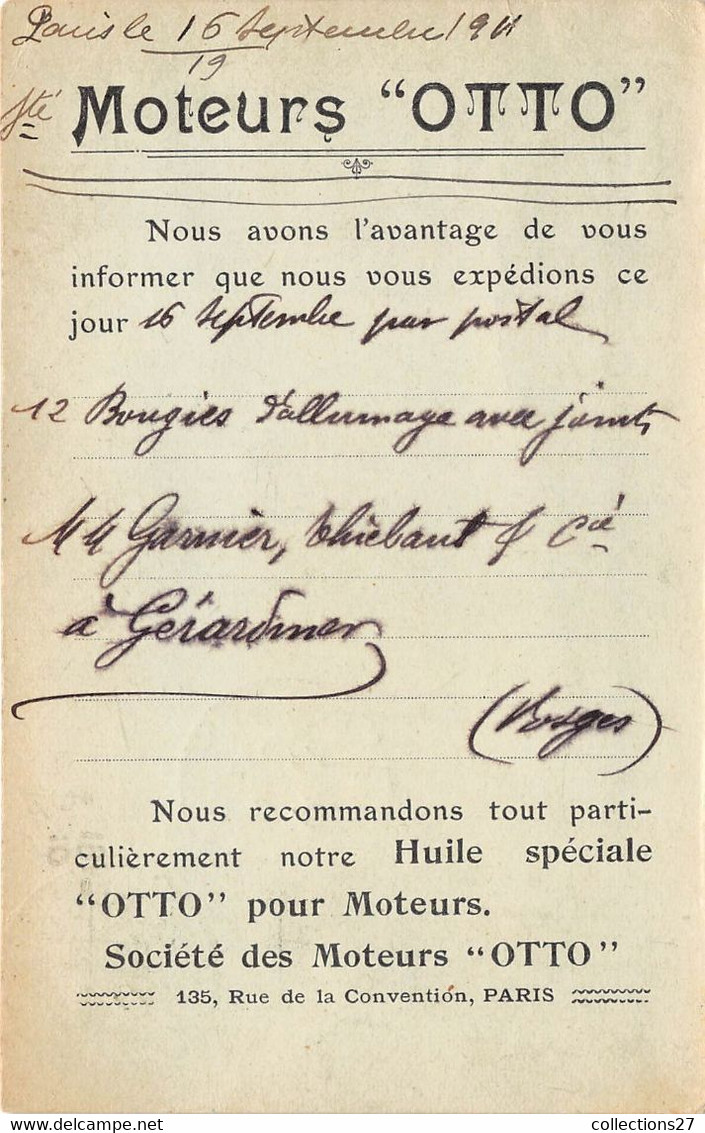 Paris le 16 Septembre 1911
19
Sté Moteurs “OTTO”
Nous avons l'avantage de vous
informer que nous vous expédions ce
jour 16 Septembre par postal
12 Bougies d'allumage avec joints
MM Garnier, Thiébaut & Cie
à Gérardmer
(Vosges)
Nous recommandons tout parti-
culièrement notre Huile spéciale
“OTTO” pour Moteurs.
Société des Moteurs “OTTO”
135, Rue de la Convention, PARIS
collections27